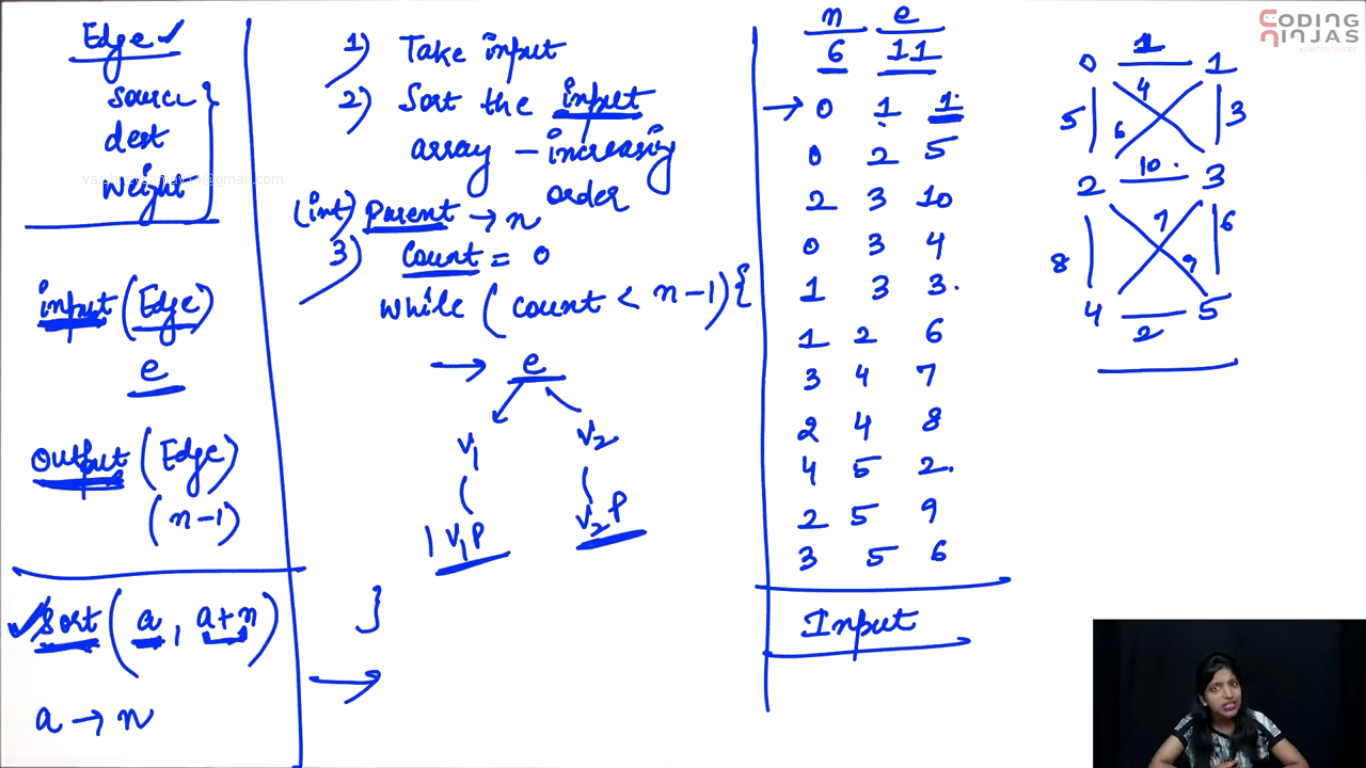 Edge ✓
source
dest
Weight
input (Edge)
e
output (Edge)
(n-1)
✓ Sort (a, a+n)
a → n
1) Take input
2) Sort the input
array - increasing
order
(int) Parent → n
3) Count = 0
while (count < n-1) {
→ e
v1 v2
v1P v2P
}
→
n e
6 11
→ 0 1 1.
0 2 5
2 3 10
0 3 4
1 3 3.
1 2 6
3 4 7
2 4 8
4 5 2.
2 5 9
3 5 6
Input
CODING
NINJAS
0 1 1
4
5 3
6
10.
2 3
7 6
8 9
4 5
2